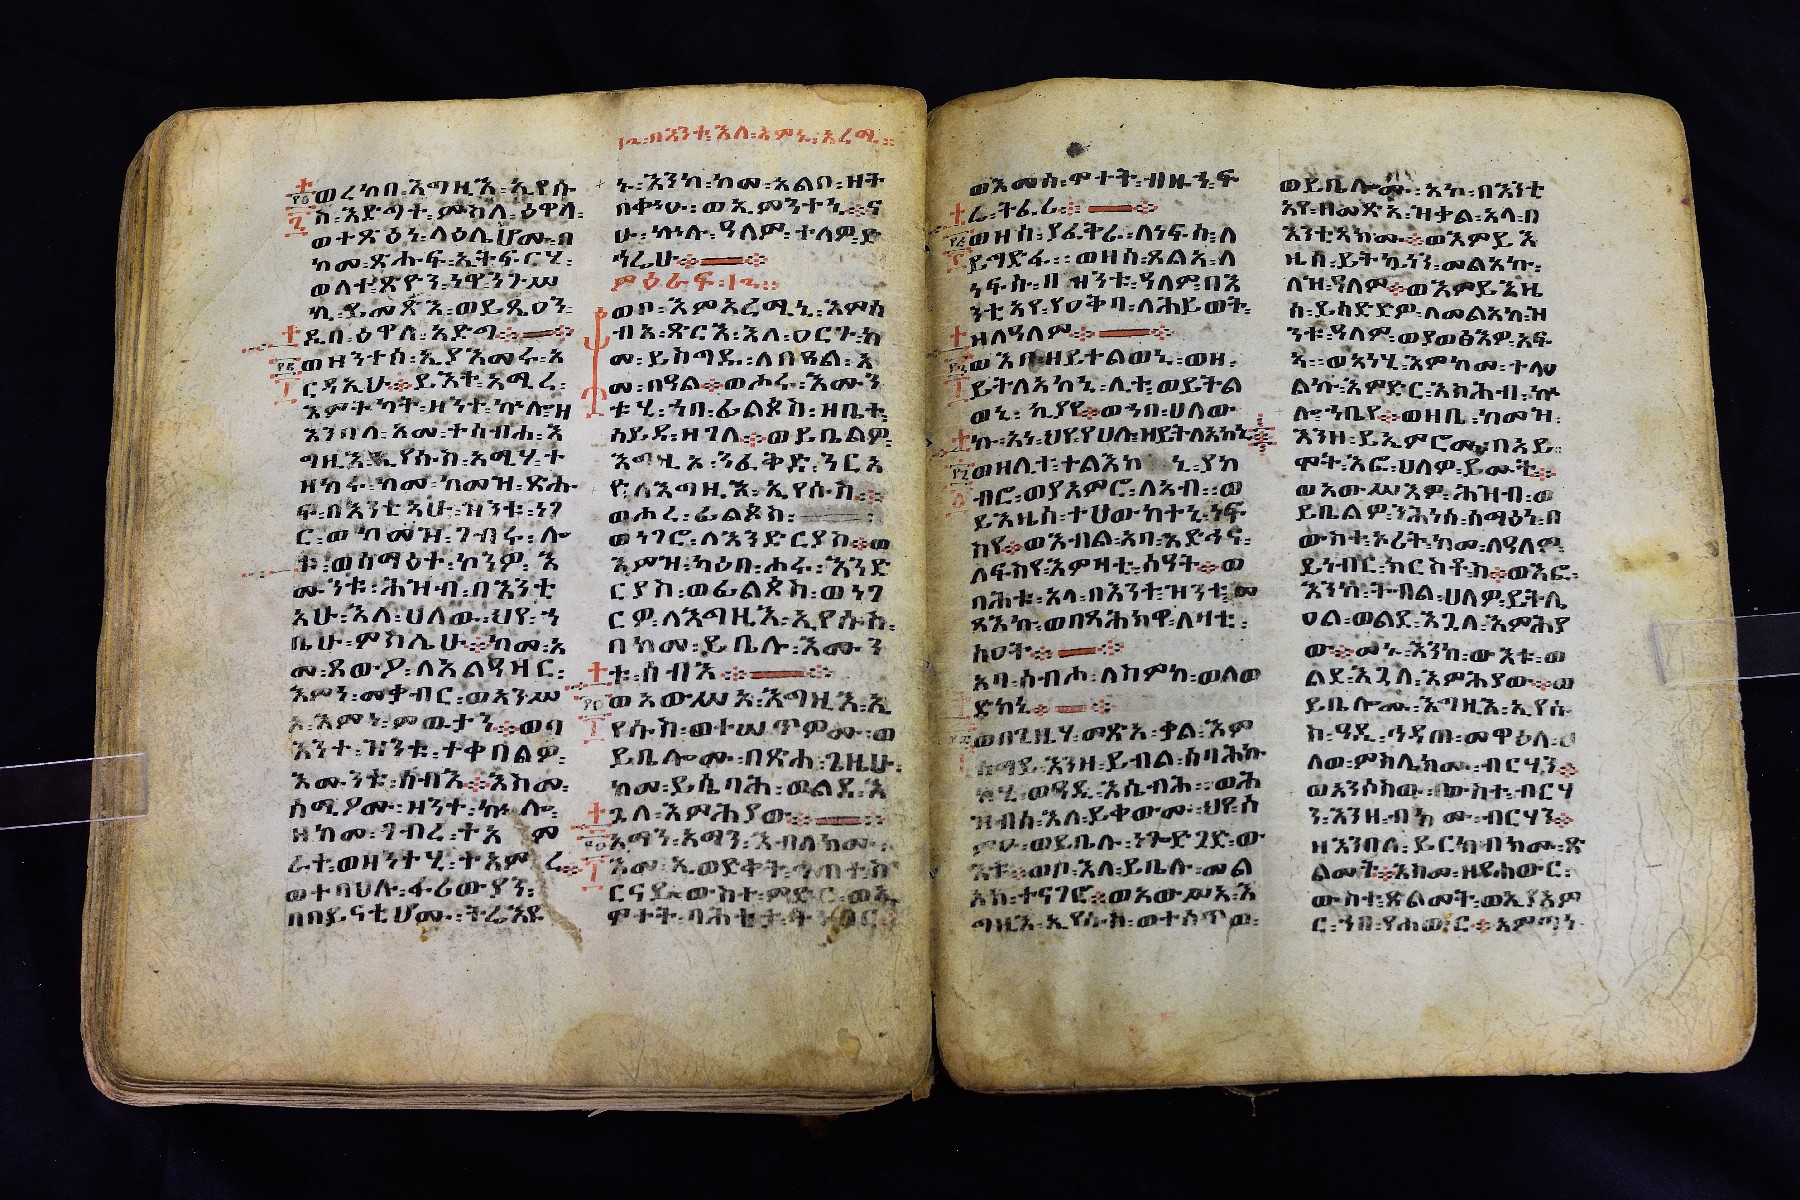 ፲፪፡በእንተ፡እለ፡እምኔ፡አረሚ።
ወረከበ፡እግዚእ፡ኢየሱ
ስ፡እድግተ፡ምስለ፡ዕዋላ፡
ወተጽዕነ፡ላዕሌሆሙ፡በ
ከመ፡ጽሑፍ፡ኢትፍርሂ፡
ወለተ፡ጽዮን፡ነዋ፡ንጉሥ
ኪ፡ይመጽእ፡ወይጼዐን፡
ዲበ፡ዕዋለ፡አድግ፨
ወዘንተሰ፡ኢያእመሩ፡አ
ርዳኢሁ፨ይእተ፡አሚረ፡
እምትካት፡ዘንተ፡ኵሎ፡ዘ
እንበለ፡አመ፡ተሰብሐ፡እ
ግዚእ፡ኢየሱስ፡አሜሃ፡ተ
ዘከሩ፡ከመ፡ከመዝ፡ጽሑ
ፍ፡በእንቲአሁ፡ዝንቱ፡ነገ
ር፡ወከመዝ፡ገብሩ፡ሎ
ቱ፡ወስማዕተ፡ኮንዎ፡እ
ሙንቱ፡ሕዝብ፡በእንቲ
አሁ፡እለ፡ሀለው፡ህየ፡ኀ
ቤሁ፡ምስሌሁ፨ከመ፡አ
መ፡ጸውዖ፡ለአልዓዛር፡
እምን፡መቃብር፡ወአንሥ
አ፡እምነ፡ምውታን፨ወበ
እንተ፡ዝንቱ፡ተቀበልዎ፡
እሙንቱ፡ሰብእ፨እስመ፡
ሰሚዖሙ፡ዘንተ፡ኵሎ፡
ዘከመ፡ገብረ፡ተአም
ራተ፡ወዘንተሂ፡ተአምረ፨
ወተባህሉ፡ፈሪሳውያን፡
በበይናቲሆሙ፡ትሬእዩ
ኑ፡እንከ፡ከመ፡አልቦ፡ዘት
በቍዑ፡ወኢምንተኒ፨ና
ሁ፡ኵሉ፡ዓለም፡ተለዎ፡ድ
ኅሬሁ፨
ምዕራፍ፡፲፪።
ወቦ፡እምአረሚኒ፡እምሰ
ብአ፡ጽርእ፡እለ፡ዐርጉ፡ከ
መ፡ይስግዱ፡ለበዓል፡አ
መ፡በዓል፨ወሖሩ፡እሙን
ቱሂ፡ኀበ፡ፊልጶስ፡ዘቤተ፡
ሳይዳ፡ዘገሊላ፨ወይቤልዎ፡
እግዚአ፡ንፈቅድ፡ንርአ
ዮ፡ለእግዚእ፡ኢየሱስ፨
ወሖረ፡ፊልጶስ፡
ወነገሮ፡ለእንድርያስ፨ወ
እምዝ፡ካዕበ፡ሖሩ፡እንድ
ርያስ፡ወፊልጶስ፡ወነገ
ርዎ፡ለእግዚእ፡ኢየሱስ፡
በከመ፡ይቤሉ፡እሙን
ቱ፡ሰብእ፨
ወአውሥአ፡እግዚእ፡ኢ
የሱስ፡ወተሠጥዎሙ፡ወ
ይቤሎሙ፡በጽሐ፡ጊዜሁ፡
ከመ፡ይሴባሕ፡ወልደ፡እ
ጓለ፡እምሕያው፨
አማን፡አማን፡እብለክሙ፡
እመ፡ኢወድቀት፡ኅጠተ፡ስ
ርናይ፡ውስተ፡ምድር፡ወኢ
ሞተት፡ባሕቲታ፡ትነብር፨
ወእመሰ፡ሞተት፡ብዙኀ፡ፍ
ሬ፡ትፈሪ፨
ወዘሰ፡ያፈቅራ፡ለነፍሱ፡ለ
ይግድፋ፡፡ወዘሰ፡ጸልአ፡ለ
ነፍሱ፡በዝንቱ፡ዓለም፡በእ
ንቲአየ፡የዐቅባ፡ለሕይወት፡
ዘለዓለም፨
ወእበ፡ዘይተልወኒ፡ወዘ፡
ይትለአከኒ፡ሊተ፡ወይትል
ወኒ፡ኪያየ፨ወኀበ፡ሀለው
ኩ፡አነ፡ህየ፡የሀሉ፡ዘይትለአከኒ፨
ወዘሊተ፡ተልእከኒ፡ያከ
ብሮ፡ወያአምሮ፡ለአብ፡፡ወ
ይእዜሰ፡ተሀውከተኒ፡ነፍ
ስየ፨ወእብል፡አባ፡አድኅና፡
ለፍስየ፡እምዛቲ፡ሰዓት፨ወ
ባሕቱ፡አላ፡በእንተ፡ዝንቱ፡መ
ጻእኩ፡ወበጻሕክዋ፡ለዛቲ፡
ሰዐት፨
አባ፡ሰብሖ፡ለስምከ፡ወለወ
ልድከኒ፨
ወበጊዜሃ፡መጽአ፡ቃል፡እም
ሰማይ፡እንዘ፡ይብል፡ሰባሕኩ
ሂ፡ወዓዲ፡እሴብሕ፡፡ወሕ
ዝብሰ፡እለ፡ይቀውሙ፡ህየ፡ሰ
ምዑ፡ወይቤሉ፡ነጐድጓድ፡ው
እቱ፨ወቦ፡እለ፡ይቤሉ፡መል
አክ፡ተናገሮ፨ወአውሥአ፡እ
ግዚእ፡ኢየሱስ፡ወተሰጥወ፡
ወይቤሎሙ፡አኮ፡በእንቲ
አየ፡ዘመጽአ፡ዝቃል፡አላ፡በ
እንቲአክሙ፨ወእምይእ
ዜሰ፡ይትኴነን፡መልአኩ፡
ለዝ፡ዓለም፨ወእምይእዜ
ሰ፡ይሰድድዎ፡ለመልአከ፡ዝ
ንቱ፡ዓለም፡ወያወፅእዎ፡አፍ
ኣ፡፡ወአነሂ፡እምከመ፡ተለዐ
ልኩ፡እምድር፡እስሕብ፡ኵ
ሎ፡ኀቤየ፨ወዘቤ፡ከመዝ፡
እንዘ፡ይኤምሮሙ፡በአይ፡
ሞት፡እፎ፡ሀለዎ፡ይሙት፨
ወአውሥእዎ፡ሕዝብ፡ወ
ይቤልዎ፡ንሕነሰ፡ሰማዕነ፡በ
ውስተ፡ኦሪት፡ከመ፡ለዓለም፡
ይነብር፡ክርስቶስ፨ወእፎ፡
እንከ፡ትብል፡ሀለዎ፡ይትሌ
ዐል፡ወልደ፡እጓለ፡እምሕያ
ው፨መኑ፡እንከ፡ውእቱ፡ወ
ልደ፡እጓለ፡እምሕያው፨ወ
ይቤሎሙ፡እግዚእ፡ኢየሱ
ስ፡ዓዲ፡ኅዳጠ፡መዋዕለ፡ሀ
ለወ፡ምስሌክሙ፡ብርሃን፨
ወአንሶስው፡በውስተ፡ብርሃ
ን፡እንዘ፡ብክሙ፡ብርሃን፨
ዘእንበለ፡ይርከብክሙ፡ጽ
ልመት፨እስመ፡ዘየሐውር፡
ውስተ፡ጽልመት፡ወኢያአም
ር፡ኀበ፡የሐውር፨አምጣነ፡